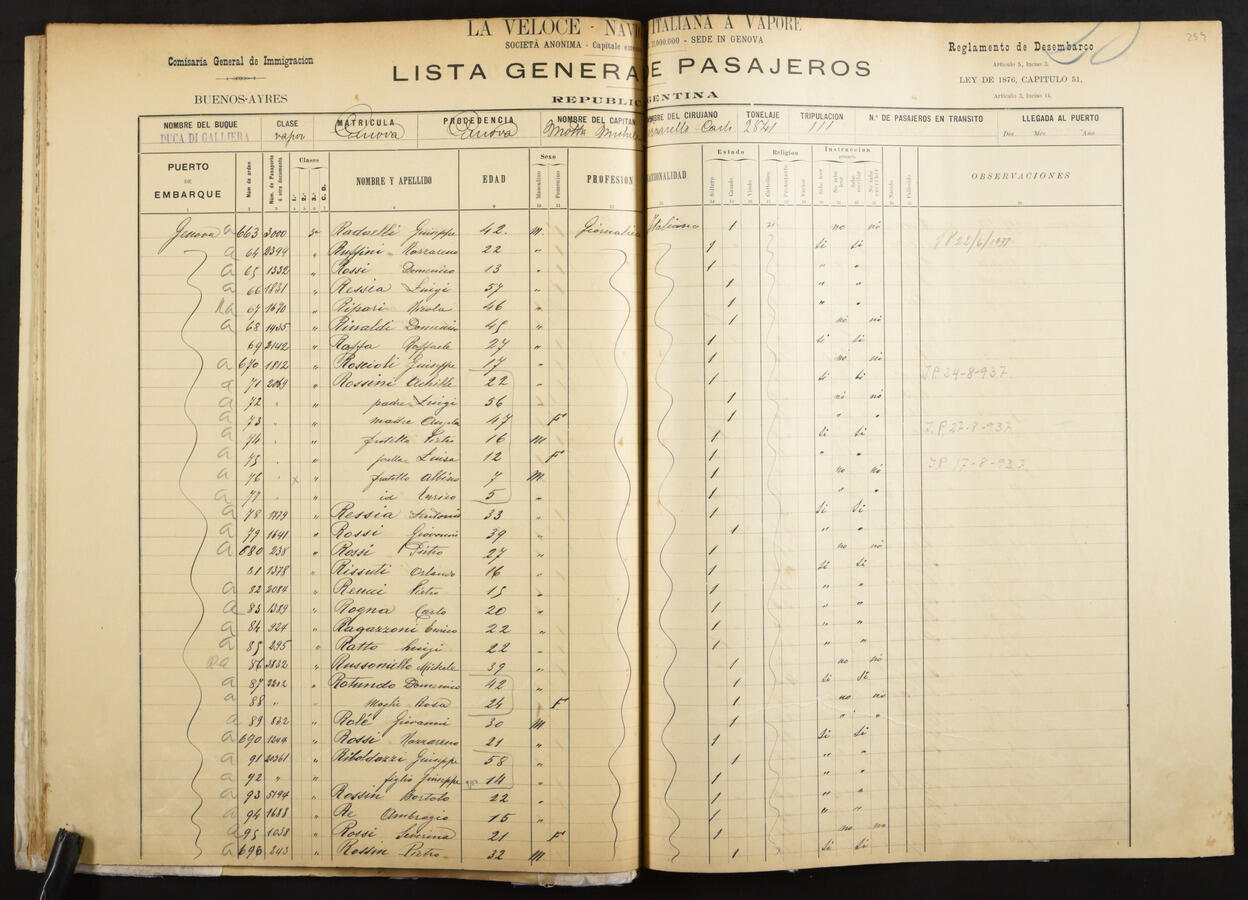 LA VELOCE - NAVI ITALIANA A VAPORE
SOCIETÀ ANONIMA - Capitale 11.000.000 - SEDE IN GENOVA
259
Comisaría General de Immigracion
BUENOS-AYRES
LISTA GENERA DE PASAJEROS
REPUBLIC GENTINA
Reglamento de Desembarco
Artículo 5, Inciso 3.
LEY DE 1876, CAPITULO 51,
Artículo 3, Inciso 14.
NOMBRE DEL BUQUE CLASE MATRICULA PROCEDENCIA NOMBRE DEL CAPITAN NOMBRE DEL CIRUJANO TONELAJE TRIPULACION N.° DE PASAJEROS EN TRANSITO LLEGADA AL PUERTO
DUCA DI GALLIERA vapor Genova Genova Carlo 2841 111 Dia Mes Año
PUERTO DE EMBARQUE Núm de orden Núm. de Pasaporte ú otro documento Clases 1.ª 2.ª 3.ª C. D. NOMBRE Y APELLIDO EDAD Sexo Masculino Femenino PROFESION CIONALIDAD Estado Soltero Casado Viudo Religion Católico Protestante Varios Instruccion primaria Sabe leer No sabe leer Sabe escribir No sabe escribir OBSERVACIONES
Genova a 663 3000 3ª Giuseppe 42 M Giornaliero Italiana 1 no no
a 64 2394 " Ruffini Nazzareno 22 " 1 si si 22/6/
a 65 1332 " Rossi Domenico 13 " 1 " "
a 66 1831 " Ressia Luigi 57 " 1 " "
67 1670 " Ripari Nicola 46 " 1 " "
a 68 1935 " Rinaldi 45 " 1 no no
69 2142 " Raffa Raffaele 27 " 1 si si
a 670 1812 " Roscioli Giuseppe 17 " 1 no no
a 71 " Rossini Achille 22 1 si si J.P. 24-8-937
a 72 " " padre Luigi 56 1 no no
a 73 " " madre 47 F 1 " "
a 74 " " fratello Pietro 16 M 1 si si J.P. 27-8-937
a 75 " " Luisa 12 F 1 " "
a 76 " x " fratello Albino 7 M 1 no no J.P. 17-8-937
a 77 " " id Enrico 5 " 1 " "
a 78 1779 " Ressia Antonio 33 " 1 si si
a 79 1641 " Rossi Giovanni 39 " 1 " "
a 680 238 " Rossi Pietro 27 " 1 no no
81 1378 " Rissuti Orlando 16 " 1 si si
a 82 2084 " Renui Pietro 15 " 1 " "
a 83 1389 " Rogna Carlo 20 " 1 " "
a 84 924 " Ragazzoni Enrico 22 " 1 " "
a 85 295 " Ratto Luigi 22 " 1 " "
86 2832 " Russoniello Michele 39 " 1 no no
a 87 2212 " Rotundo Domenico 42 " 1 si si
a 88 " " Moglie Rosa 24 F 1 no no
a 89 832 " Rolé Giovanni 30 M 1 " "
a 690 1244 " Rossi Nazzareno 21 " 1 si si
a 91 " Riboldazzi Giuseppe 58 " 1 " "
a 92 " " figlio Giuseppe 14 " 1 " "
a 93 5194 " Rossin Bortolo 22 " 1 " "
a 94 1688 " Re Ambrogio 15 " 1 " "
a 95 1038 " Rossi Severina 21 F 1 no no
a 696 243 " Rossin Pietro 32 M 1 si si